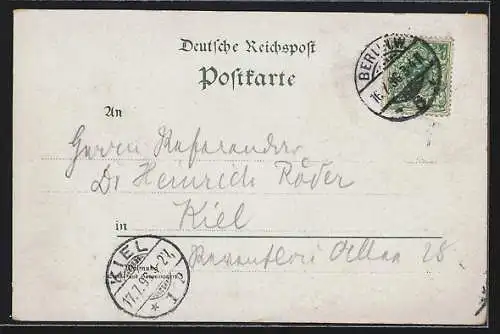 Deutsche Reichspost
Postkarte
BERLIN.W.
16.7.96
An
Herrn Referendar
Dr Heinrich Röder
in Kiel
Allee 28.
KIEL
17.7.96
* 1